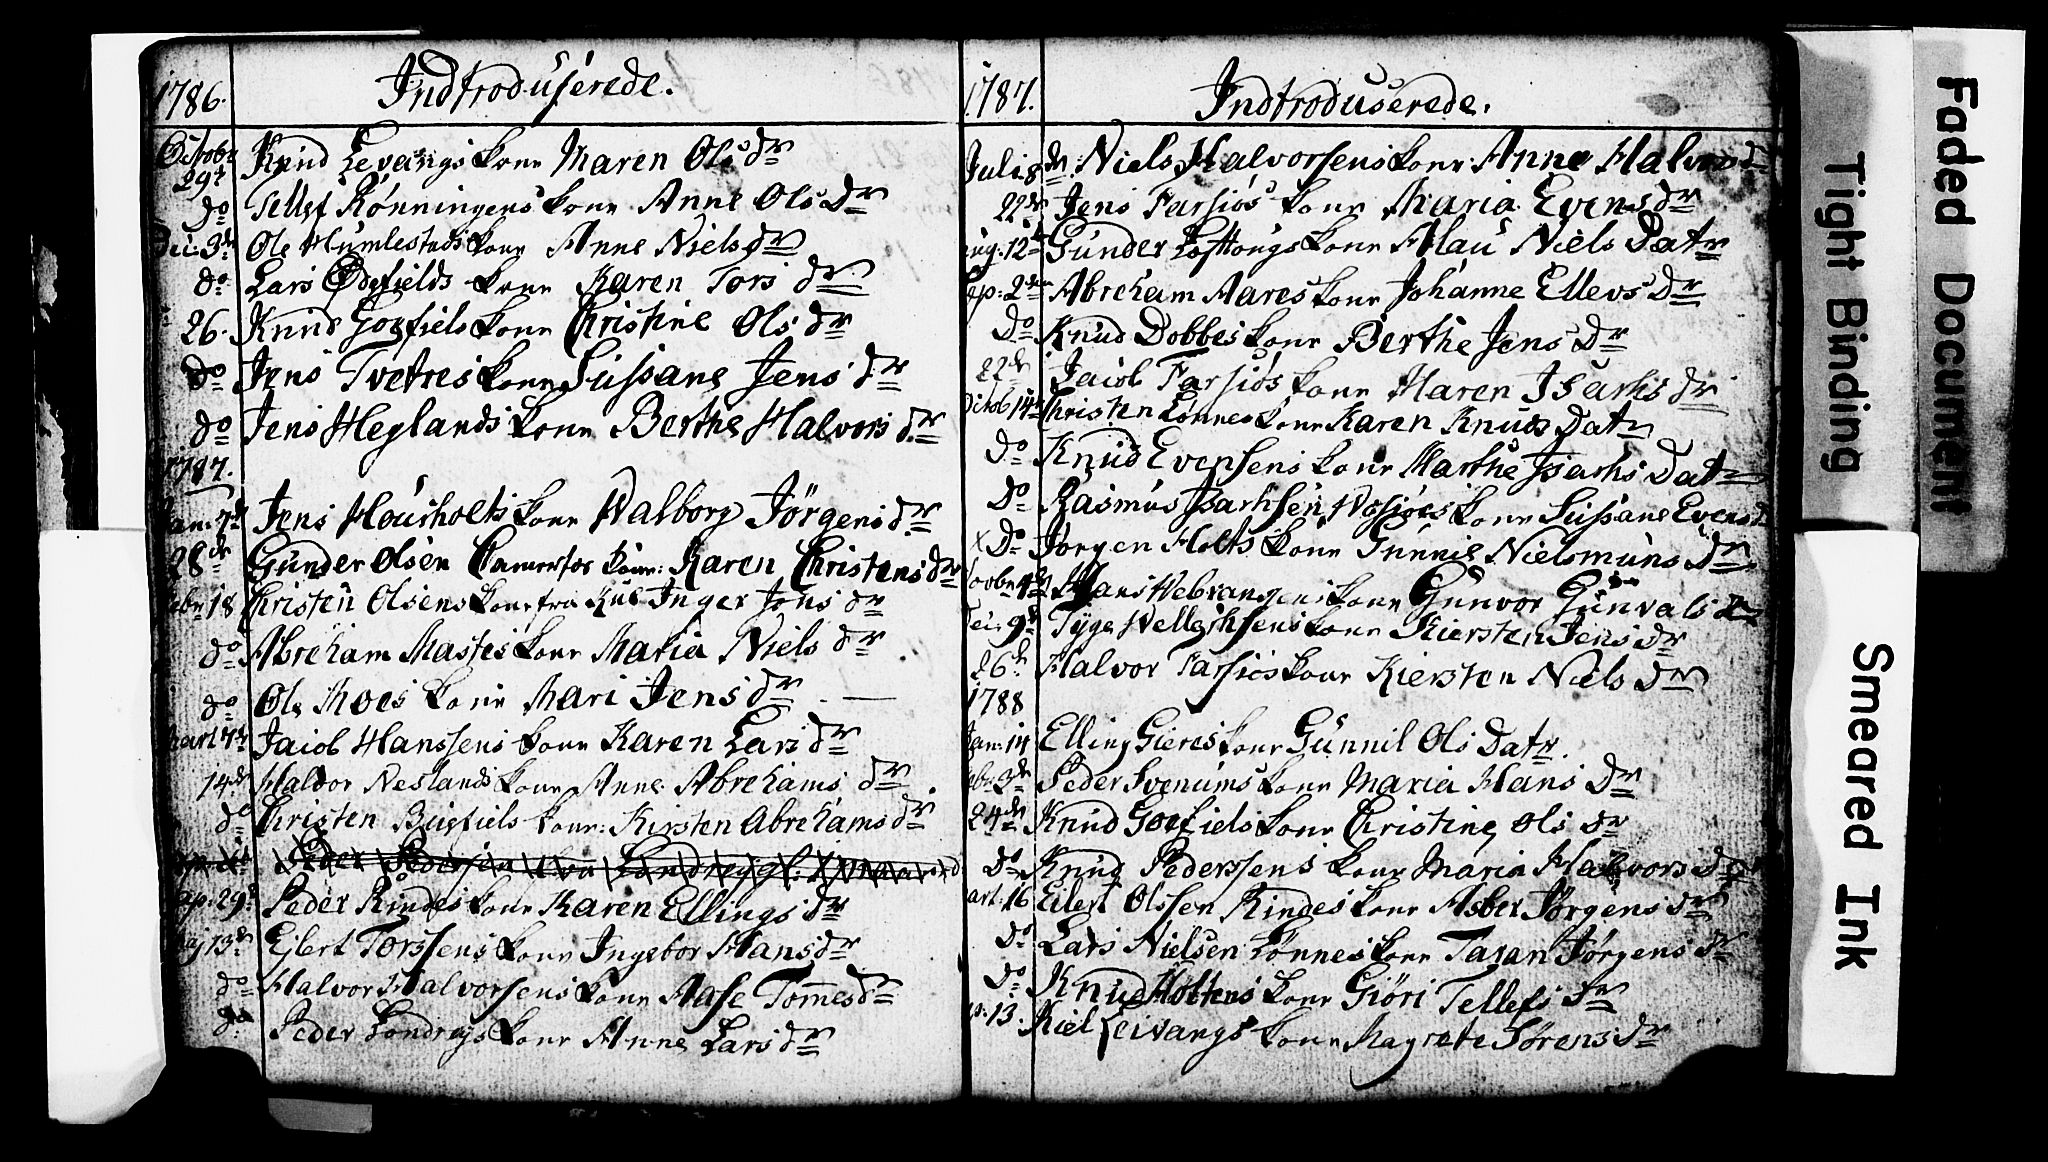 1786. Indtroduserede.
Octobr 29de Knud Levangs kone Maren Olsdr
do Tellef Rønningens kone Anne Ols Dr
Dec: 3de Ole Humlestads kone Anne Nielsdr
do Lars Ødefields kone Karen Tors dr
26. Knud Goefiels kone Christine Ols dr
do Jens Tvetres kone Sussane Jens dr
do Jens Heglands kone Berthe Halvors dr
1787.
Jan: 7de Jens Housholts kone Walborg Jørgens dr
28de Gunder Olsen kone: Karen Christens dr
Febr 18 Christen Olsens kone fra Inger Jens dr
do Abreham Mastes kone Maria Niels dr
do Ole Moes kone Mari Jens dr
Mart Jacob Hanssens kone Karen Lars dr
14de Halvor Neslands kone Anne Abrehams dr
do Christen Buefiels kone: Kirsten Abrehams dr
Peder Pedersen
Ap: 29de Peder Kindes kone Karen Ellings dr
Maj 13de Ejlert Torssens kone Ingebor Hans dr
do Halvor Halvorsens kone Aase Tomes dr
do Peder Londregs kone Anne Lars dr
1787. Indtroduserede.
Juli 8de: Niels Halvorsens kone Anne Halvors d
22de Jens Farsiøs kone Maria Evens dr
Aug. 12te Gunder kone Mau Niels Datr
Sep: 2den Abreham Aares kone Johanne Ellevs Dr
Do Knud Dobbes kone Berthe Jens Dr
22de Jacob Farsiøs kone Maren Isachs dr
Octob 14de Christen Lønnes kone Karen Knuds Datr
Do Knud Evensens kone Marthe Isachs Datr
Do Rasmus Isachsen kone Sussane Evens d
x Do Jorgen Holts kone Gunnil Nielsmuns dr
Hans kone Gunvor Gunvals dr
Dec: 9de Tyge kone Kiersten Jens dr
26de Halvor Farsiøs kone Kiersten Niels dr
1788
Jan: 14 Elling Gieres kone Gunnil Ols Datr.
Febr: 3de Peder Svenums kone Maria Hans Dr
24de Knud Goefiels kone Christine Ols dr
Do Knud Pederssens kone Maria Halvors Dr
Mart: 16 Eilert Olssen Kindes kone Asber Jørgens dr
do Lars Nielsen Lønnes kone Taran Jørgens dr
Do Knud Holtens kone Giøri Tellefs dr
Ap: 13. Kiel Leivangs kone Magrete Sørens dr
Faded Document
Tight Binding
Smeared Ink